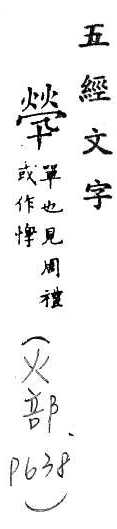 五經文字
煢
單也見周禮
或作惸
(火部、P638)